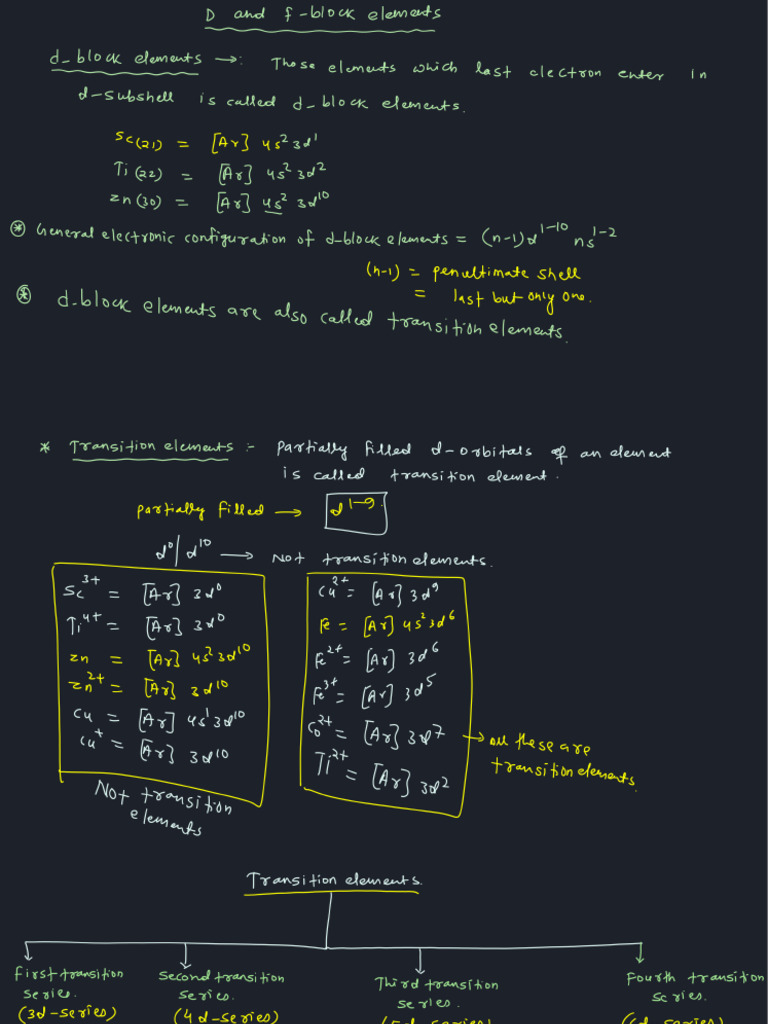 D and f-block elements
d-block elements →: Those elements which last electron enter in
d-subshell is called d-block elements.
Sc(21) = [Ar] 4s² 3d¹
Ti(22) = [Ar] 4s² 3d²
Zn(30) = [Ar] 4s² 3d¹⁰
* General electronic configuration of d-block elements = (n-1)d¹⁻¹⁰ ns¹⁻²
(n-1) = penultimate shell
= last but only one.
* d-block elements are also called transition elements.
* Transition elements :- partially filled d-orbitals of an element
is called transition element.
partially filled → d¹⁻⁹
d⁰/d¹⁰ → Not transition elements.
Sc³⁺ = [Ar] 3d⁰
Ti⁴⁺ = [Ar] 3d⁰
Zn = [Ar] 4s² 3d¹⁰
Zn²⁺ = [Ar] 3d¹⁰
Cu = [Ar] 4s¹ 3d¹⁰
Cu⁺ = [Ar] 3d¹⁰
Not transition
elements
Cu²⁺ = [Ar] 3d⁹
Fe = [Ar] 4s² 3d⁶
Fe²⁺ = [Ar] 3d⁶
Fe³⁺ = [Ar] 3d⁵
Co²⁺ = [Ar] 3d⁷
Ti²⁺ = [Ar] 3d²
→ all these are
transition elements.
Transition elements.
First transition
series.
(3d-series)
Second transition
series.
(4d-series)
Third transition
series.
(5d-series)
Fourth transition
series.
(6d-series)